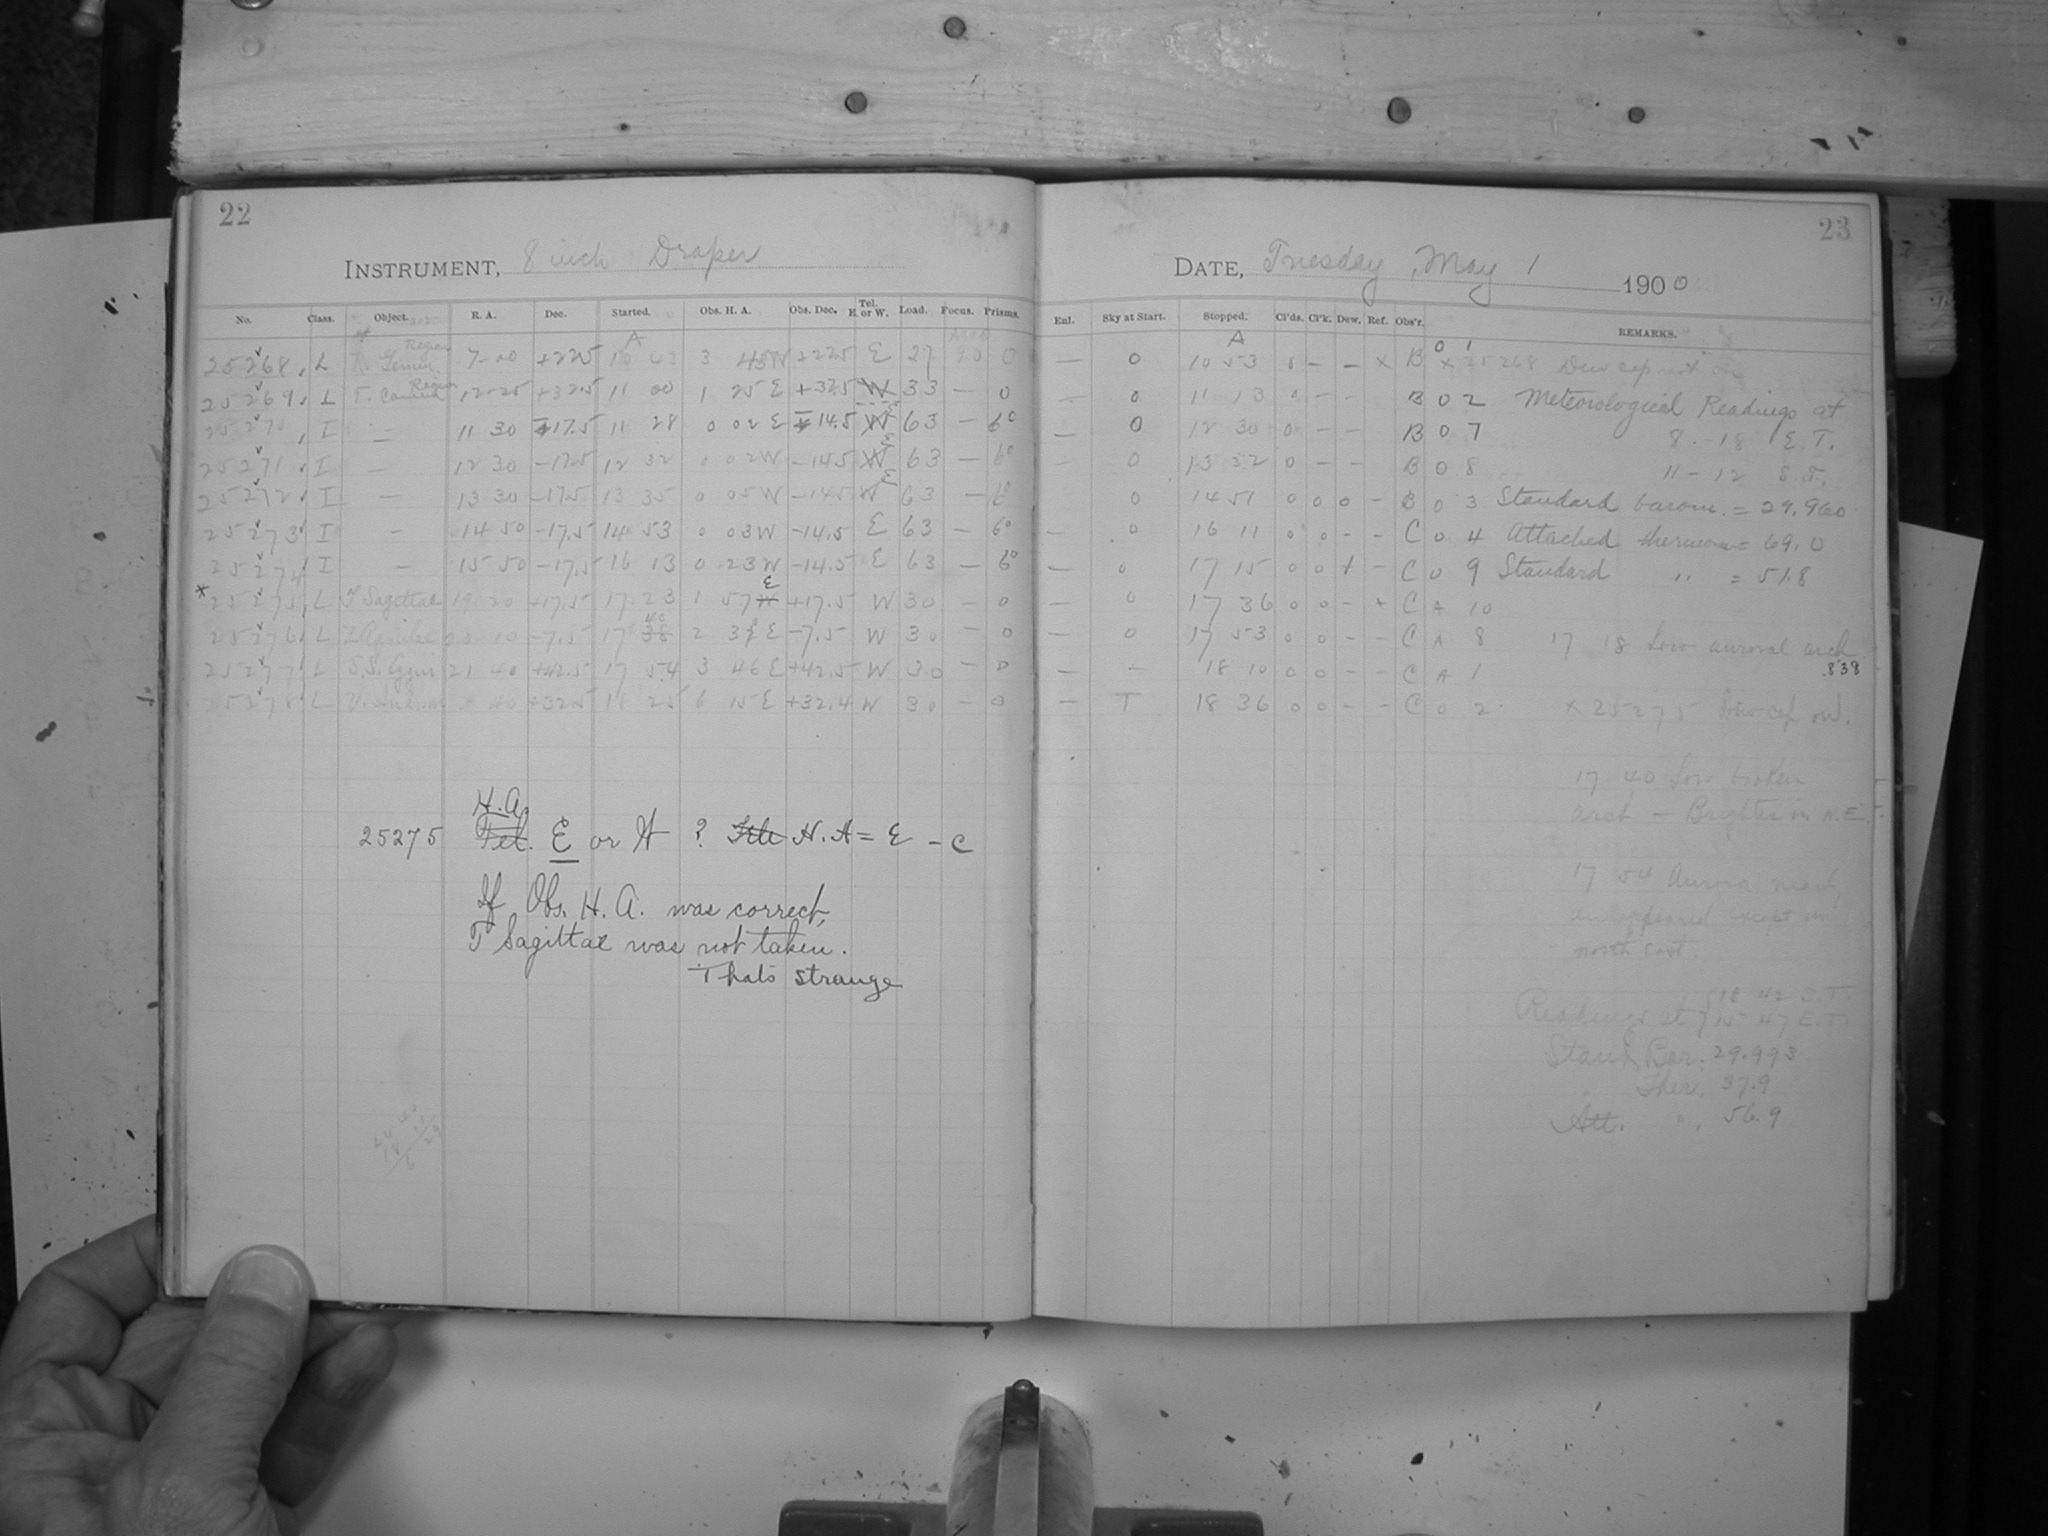 22
INSTRUMENT, 8 inch Draper
No. Class. Object. R. A. Dec. Started. Obs. H. A. Obs. Dec. Tel. E. or W. Load. Focus. Prisms.
25268 L R. Gemin. Region 7-00 +22.5 10 43 3 43W +22.5 E 27 0
25269 L T. Canum Region 12-25 +32.5 11 00 1 25 E +32.5 W 33 — 0
25270 I — 11 30 -17.5 11 28 0 02 E -14.5 W E 63 — 6°
25271 I — 12 30 -17.5 12 32 0 02W -14.5 W E 63 — 6°
25272 I — 13 30 -17.5 13 35 0 05W -14.5 W E 63 — 6°
25273 I — 14 50 -17.5 14 53 0 03W -14.5 E 63 — 6°
25274 I — 15 50 -17.5 16 13 0 23W -14.5 E 63 — 6°
*25275 L T Sagittae 19 20 +17.5 17 23 1 57 W E +17.5 W 30 — 0
25276 L 20 10 -7.5 17 38 40 2 E -7.5 W 30 — 0
25277 L S.S. Cygni 21 40 +42.5 17 54 3 46 E +42.5 W 30 — 0
25278 L 0 40 +32.5 18 25 6 15 E +32.4 W 30 — 0
H. A.
25275 Tel. E or W ? Tele H. A = E — C
If Obs. H. A. was correct,
T Sagittae was not taken.
That's strange
23
DATE, Tuesday, May 1 1900
Enl. Sky at Start. Stopped. Cl'ds. Cl'k. Dew. Ref. Obs'r. REMARKS.
— 0 10 53 0 — — x B 0 1 x 25268 Dew cap not on
— 0 11 13 0 — — B 0 2 Meteorological Readings at
— 0 12 30 0 — — B 0 7 8 - 18 E. T.
— 0 13 32 0 — — B 0 8 11 - 12 S. T.
0 14 51 0 0 0 — B 0 3 Standard barom. = 29.960
— 0 16 11 0 0 — — C 0 4 Attached thermom = 69.0
— 0 17 15 0 0 + — C 0 9 Standard " = 51.8
— 0 17 36 0 0 — + C A 10
— 0 17 53 0 0 — — C A 8 17 18 Low auroral arch
— — 18 10 0 0 — — C A 1 838
— T 18 36 0 0 — — C 0 2 x 25275 Dew cap on.
17 40 Low broken
arch — Brighter in N. E.
17 54 Aurora nearly
disappeared except in
north east.
Readings at 18 42 S.T.
15 47 E.T.
Stand. Bar. 29.993
" Ther. 37.9
Att. " 56.9